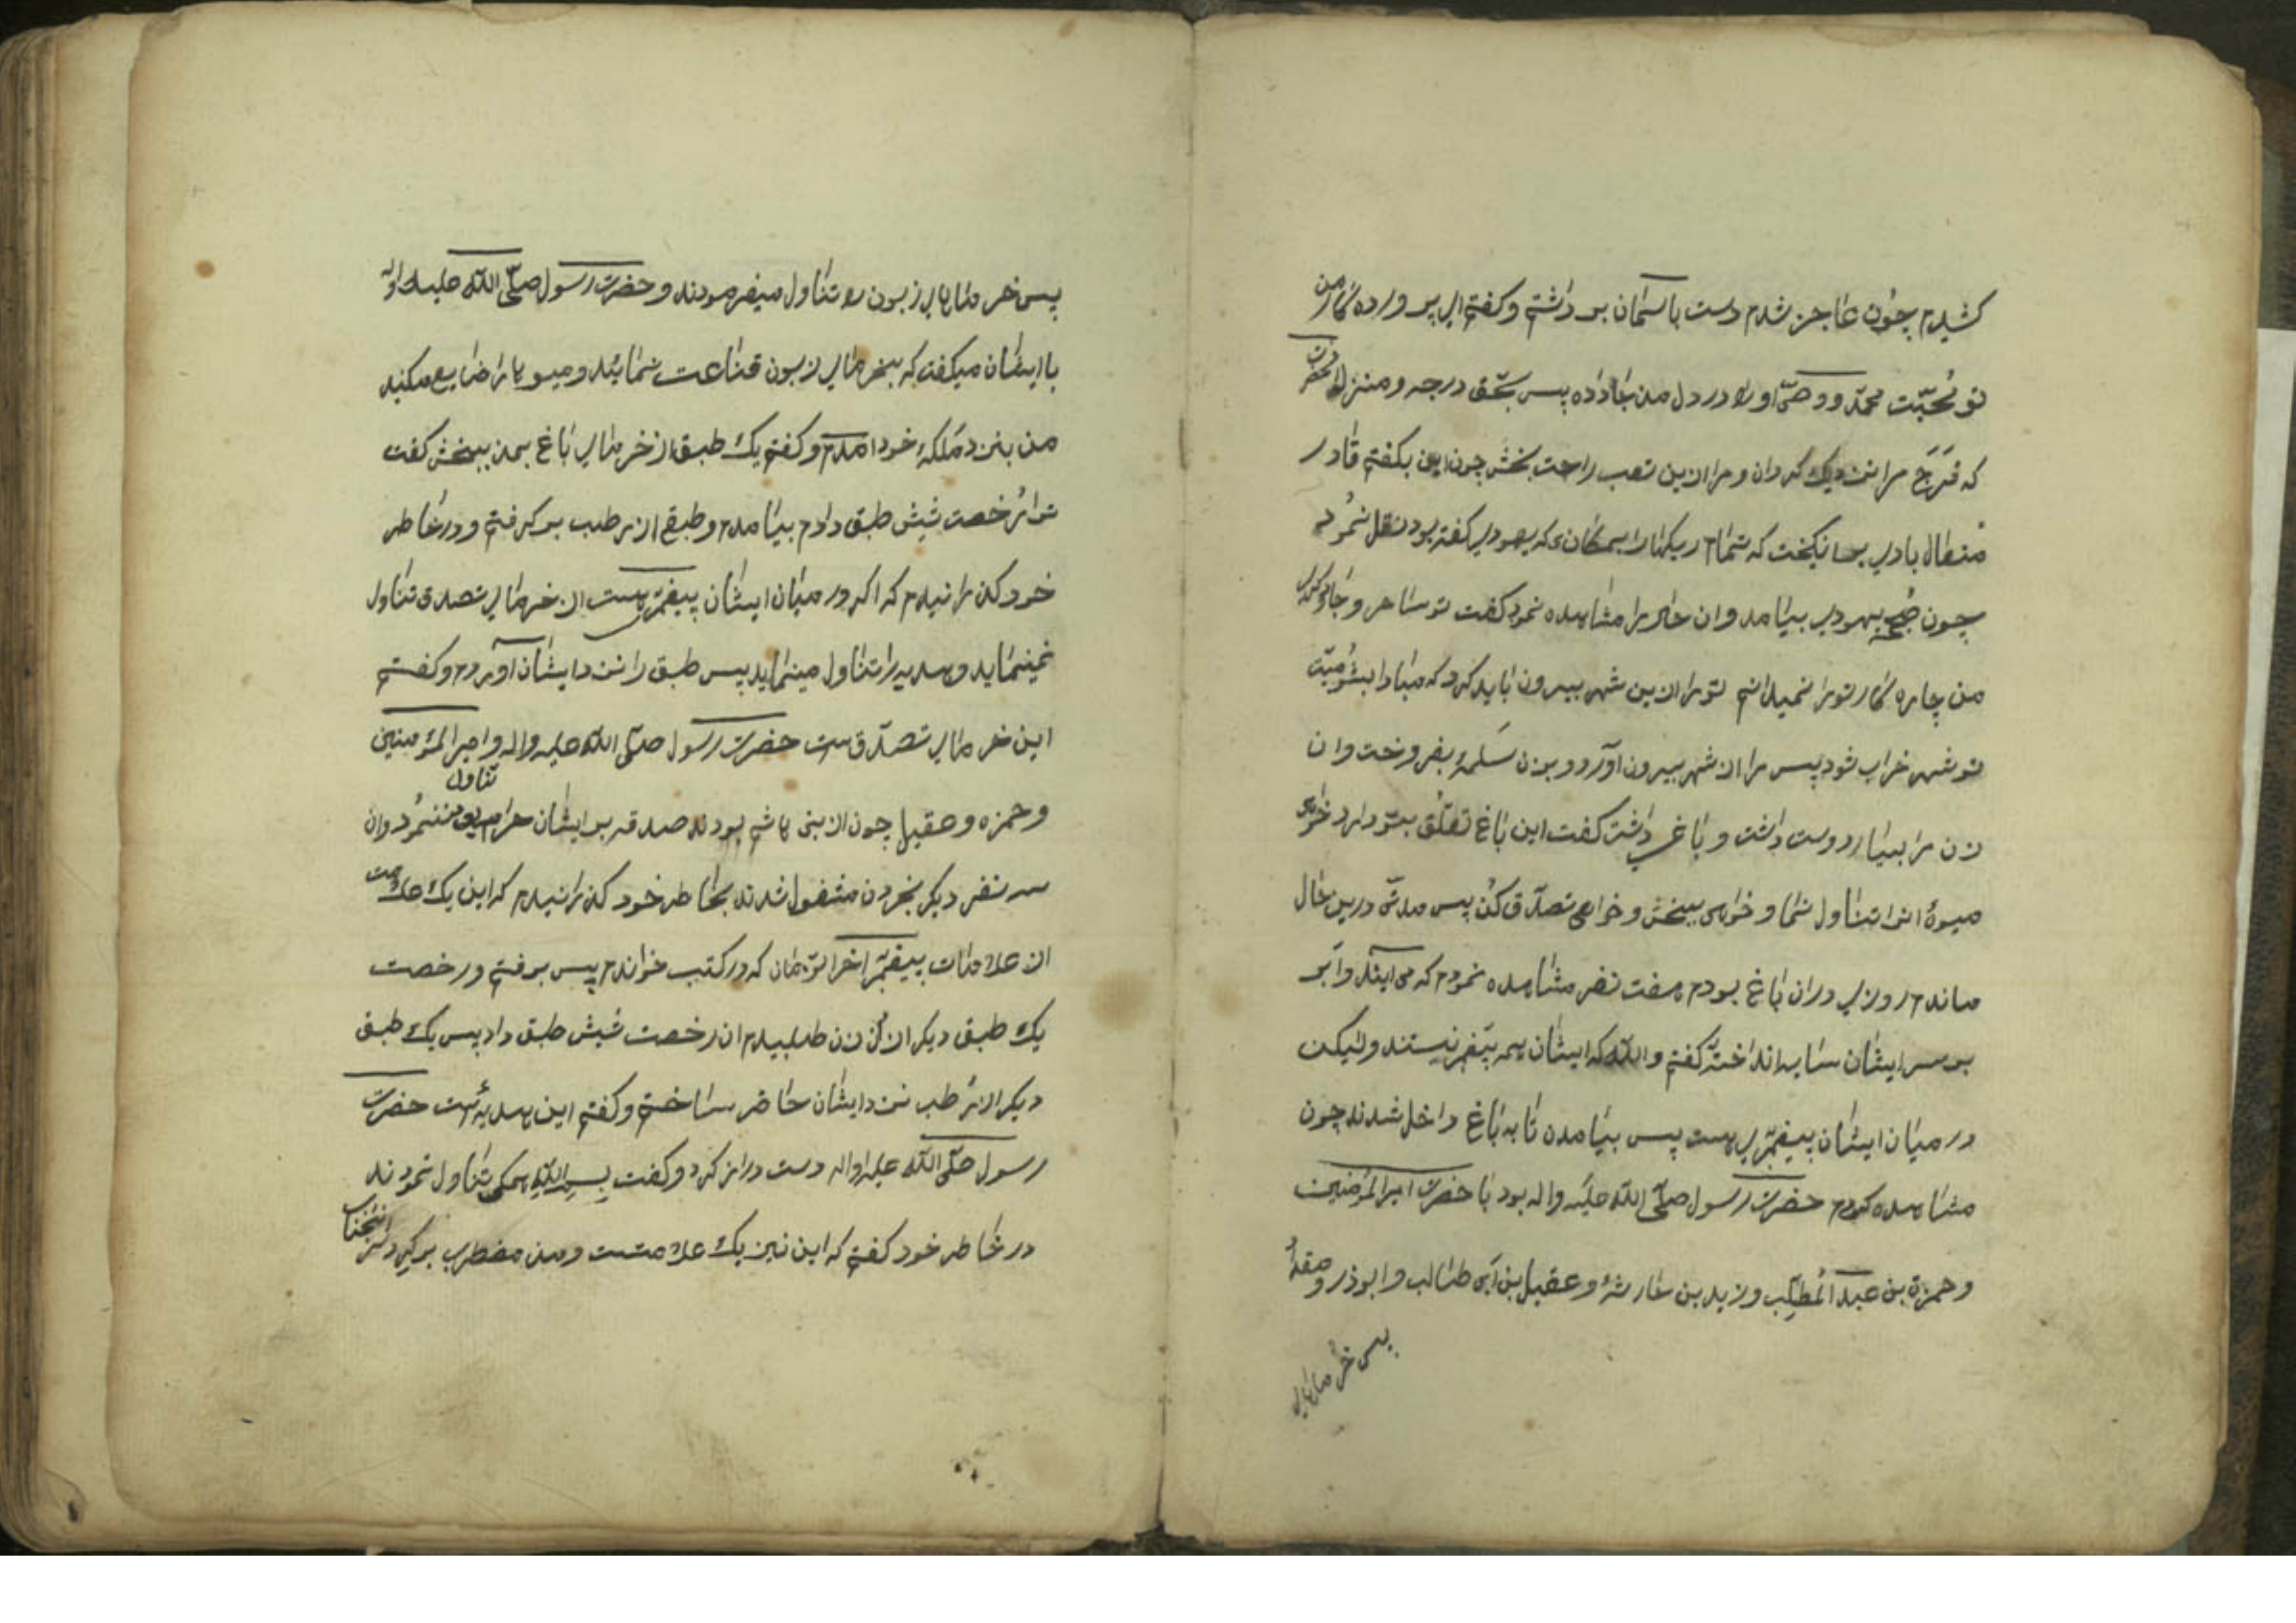 کشیدم چون عاجز شدم دست باسمان برداشتم و کفتم ای پروردهٔ کار من
تو محبّت محمّد و وصیّ اورا در دل من جا داده پس بحقّ درجه و منزلت انحضرت
که فَرَج مرا نزدیک کردان و مرا ازین تعب راحت بخش چون این بکفتم قادر
متعال بادی برانکیخت که تمام ریکهارا بمکانی که یهودی کفته بود نقل نمود
چون صبح یهودی بیامد و ان حال را مشاهده نمود کفت تو ساحر و جادوکری
من چارهٔ کار تورا نمیدانم تورا ازین شهر بیرون باید کرد که مبادا بشومیّت
تو شهر خراب شود پس مرا از شهر بیرون آورد و بزن سَلمیٔه بفروخت و ان
زن مرا بسیار دوست داشت و باغی داشت کفت این باغ تعلّق بتو دارد خواهی
میوهٔ انرا تناول نما و خواهی ببخش و خواهی تصدّق کن پس مدتی درین حال
ماندم روزی دران باغ بودم هفت نفر مشاهده نمودم که می ایند و ابر
بر سر ایشان سایه انداخته کفتم والله که ایشان همه پیغمبر نیستند ولیکن
در میان ایشان پیغمبری هست پس بیامدن تا به باغ داخل شدند چون
مشاهده کردم حضرت رسول صلّی الله علیه واله بود با حضرت امیرالمؤمنین
و حمزة بن عبد المطلّب و زید بن حارثه و عقیل بن ابی طالب و ابوذر و مقداد
پس خرماهای
پس خرماهای زبون را تناول میفرمودند و حضرت رسول صلّی الله علیه واله
با ایشان میکفت که بخرمای زبون قناعت نمائید و میوه را ضایع مکنید
من بنزد ملکهٔ خود امدم و کفتم یک طبق از خرمای باغ بمن ببخش کفت
ترا رخصت شش طبق دادم بیامدم و طبقی از رطب برکرفتم و در خاطر
خود کذرانیدم که اکر در میان ایشان پیغمبری هست از خرمای تصدق تناول
نمینماید و هدیه را تناول مینماید پس طبق را نزد ایشان آوردم و کفتم
این خرمای تصدّق است حضرت رسول صلّی الله علیه واله و امیرالمؤمنین
و حمزه و عقیل چون از بنی هاشم بودند صدقه بر ایشان حرام بود تناول ننمود و ان
سه نفر دیکر بخوردن مشغول شدند بخاطر خود کذرانیدم که این یک علامت است
از علامات پیغمبر اخر الزمان که در کتب خواندم پس برفتم و رخصت
یک طبق دیکر از ان زن طلبیدم ان رخصت شش طبق داد پس یک طبق
دیکر از رطب نزد ایشان حاضر ساختم و کفتم این هدیه است حضرت
رسول صلّی الله علیه واله دست دراز کرد و کفت بسم الله همکی تناول نمودند
در خاطر خود کفتم که این نیز یک علامتست و من مضطرب برکرد سر انجناب